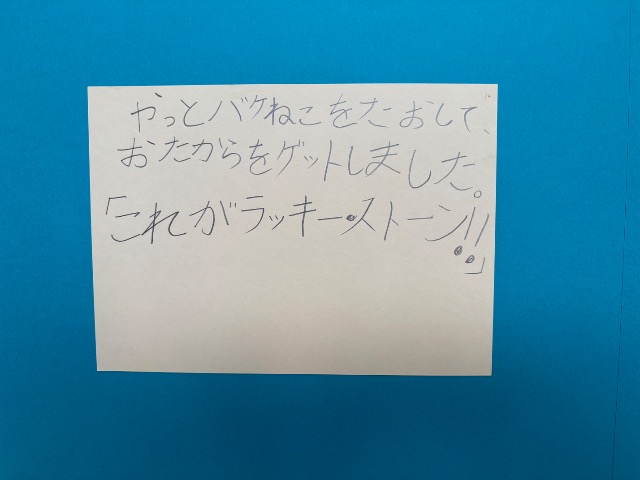 やっとバケねこをたおしで、
おたからをゲットしました。
「これがラッキー・ストーン!!」